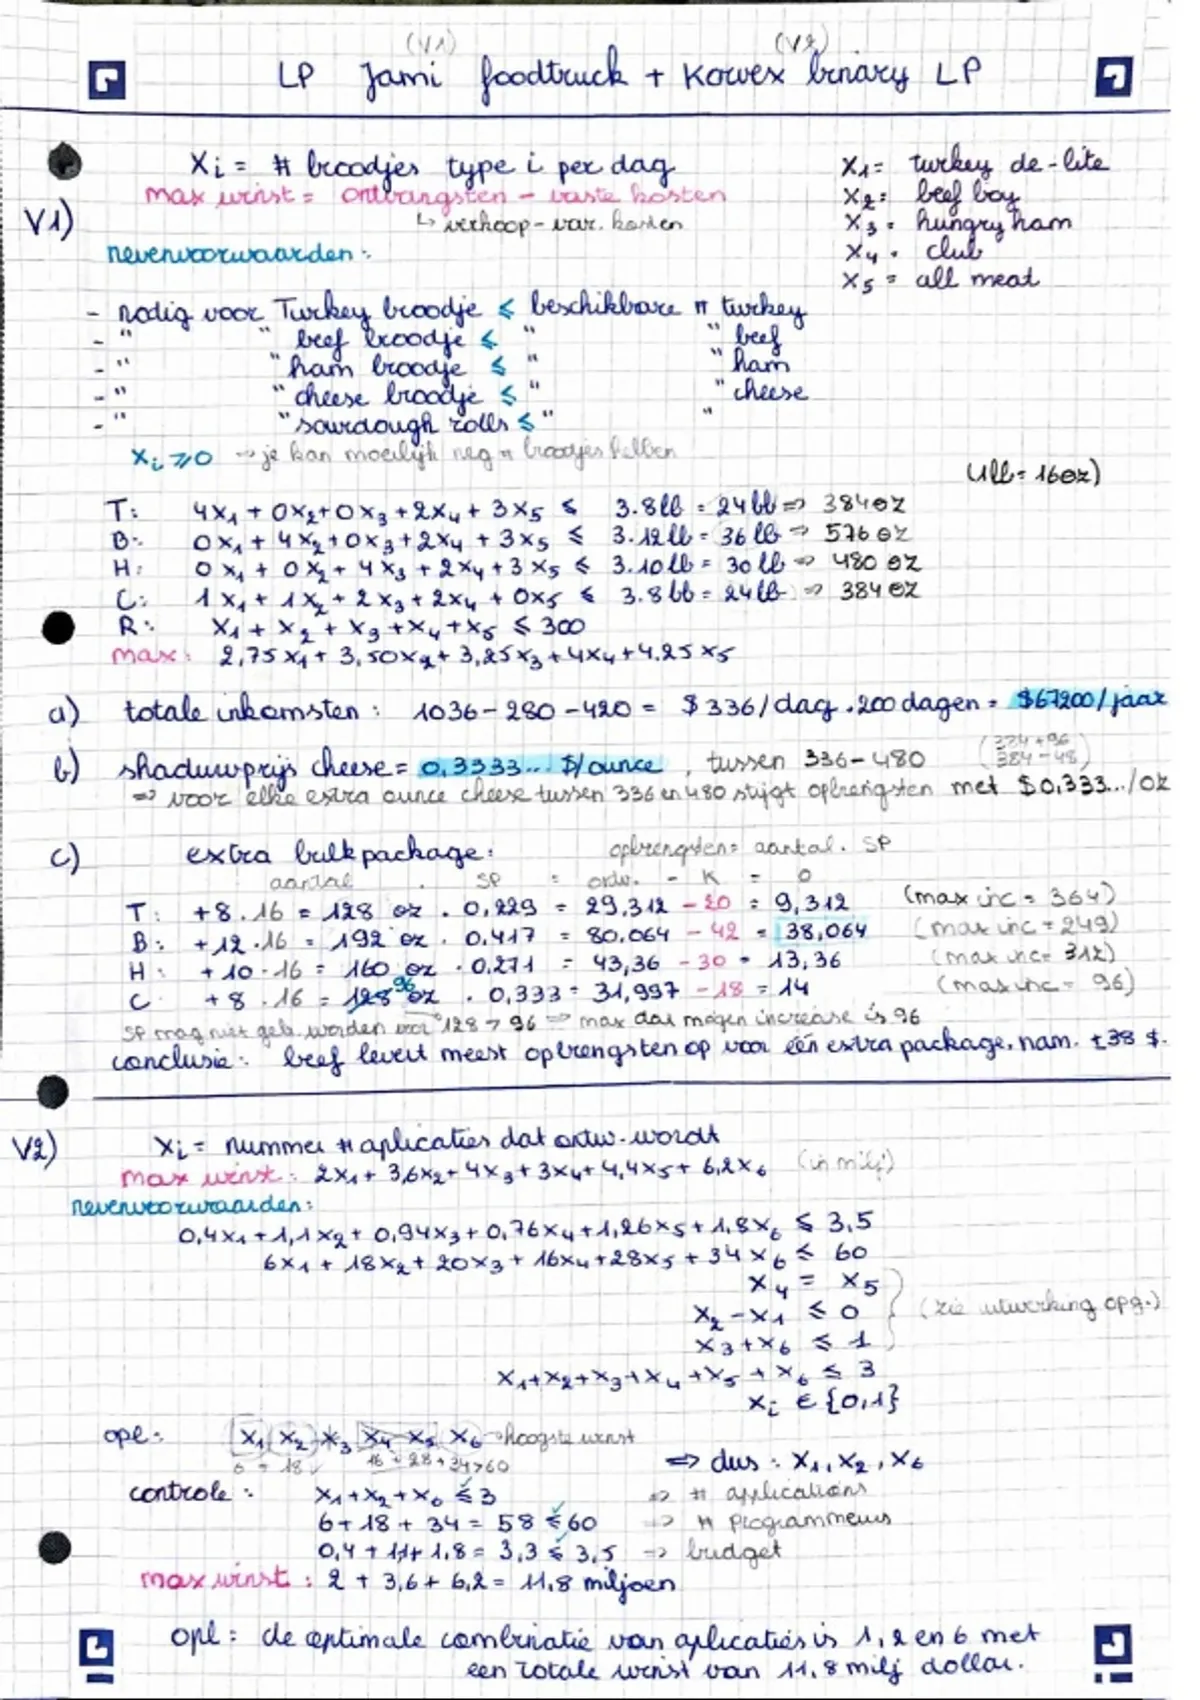 (V1) (V2)
LP Jami foodtruck + Korvex binary LP
Xi = # broodjes type i per dag
X1 = turkey de-lite
max winst = ontvangsten - vaste kosten
X2 = beef boy
V1) ↳ verkoop - var. kosten
X3 = hungry ham
nevenvoorwaarden:
X4 = club
X5 = all meat
- nodig voor Turkey broodje ≤ beschikbare # turkey
- " " beef broodje ≤ " " beef
- " " ham broodje ≤ " " ham
- " " cheese broodje ≤ " " cheese
- " " sourdough rolls ≤ " "
Xi ≥ 0 → je kan moeilijk neg # broodjes hebben
(1lb = 16oz)
T: 4X1 + 0X2 + 0X3 + 2X4 + 3X5 ≤ 3.8lb = 24lb ⇒ 384oz
B: 0X1 + 4X2 + 0X3 + 2X4 + 3X5 ≤ 3.12lb = 36lb ⇒ 576oz
H: 0X1 + 0X2 + 4X3 + 2X4 + 3X5 ≤ 3.10lb = 30lb ⇒ 480oz
C: 1X1 + 1X2 + 2X3 + 2X4 + 0X5 ≤ 3.8lb = 24lb ⇒ 384oz
R: X1 + X2 + X3 + X4 + X5 ≤ 300
max: 2,75X1 + 3,50X2 + 3,25X3 + 4X4 + 4,25X5
a) totale inkomsten: 1036 - 280 - 420 = $336/dag . 200 dagen = $67200/jaar
b) shaduwprijs cheese = 0,3333... $/ounce, tussen 336 - 480 (384 + 96
384 - 48)
⇒ voor elke extra ounce cheese tussen 336 en 480 stijgt opbrengsten met $0,333.../oz
c) extra bulkpackage: opbrengsten = aantal . SP
aantal . SP = ontv. - K = O
T: +8.16 = 128 oz . 0,229 = 29,312 - 20 = 9,312 (max inc = 364)
B: +12.16 = 192 oz . 0,417 = 80,064 - 42 = 38,064 (max inc = 249)
H: +10.16 = 160 oz . 0,271 = 43,36 - 30 = 13,36 (max inc = 312)
C: +8.16 = 128 96 oz . 0,333 = 31,997 - 18 = 14 (max inc = 96)
SP mag niet geb. worden voor 128 > 96 ⇒ max dat mogen increase is 96
conclusie: beef levert meest opbrengsten op voor één extra package, nam. ±38 $.
V2) Xi = nummer # aplicaties dat ontw. wordt
max winst: 2X1 + 3,6X2 + 4X3 + 3X4 + 4,4X5 + 6,2X6 (in milj)
nevenvoorwaarden:
0,4X1 + 1,1X2 + 0,94X3 + 0,76X4 + 1,26X5 + 1,8X6 ≤ 3,5
6X1 + 18X2 + 20X3 + 16X4 + 28X5 + 34X6 ≤ 60
X4 = X5
X2 - X1 ≤ 0 (zie uitwerking opg.)
X3 + X6 ≤ 1
X1 + X2 + X3 + X4 + X5 + X6 ≤ 3
Xi ∈ {0,1}
opl: X1 X2 X3 X4 X5 X6 → hoogste winst
6 + 18 ✓ 16 + 28 + 34 > 60 ⇒ dus: X1, X2, X6
controle: X1 + X2 + X6 ≤ 3 ✓ ⇒ # applications
6 + 18 + 34 = 58 ≤ 60 ✓ ⇒ # programmeurs
0,4 + 1,1 + 1,8 = 3,3 ≤ 3,5 ✓ ⇒ budget
max winst: 2 + 3,6 + 6,2 = 11,8 miljoen
opl: de optimale combinatie van aplicaties is 1, 2 en 6 met
een totale winst van 11,8 milj dollar.